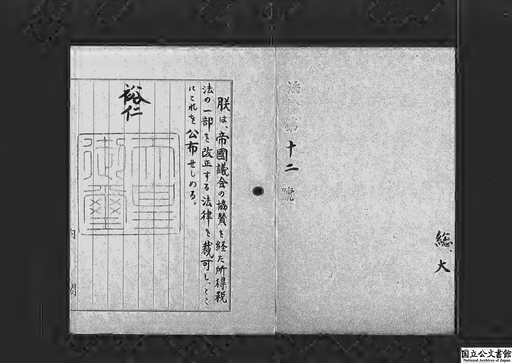 総大
法律第十二號
朕は、帝國議会の協賛を経た所得税
法の一部を改正する法律を裁可し、ここ
にこれを公布せしめる。
裕仁
天皇
御璽
内閣
国立公文書館
National Archives of Japan